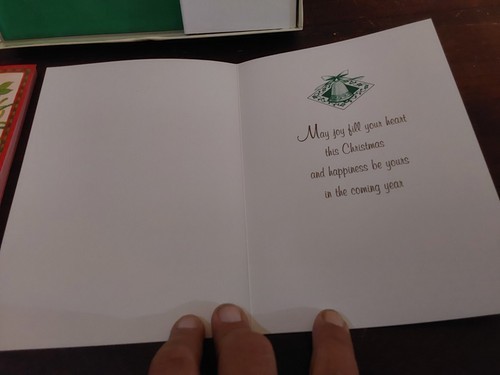 May joy fill your heart
this Christmas
and happiness be yours
in the coming year